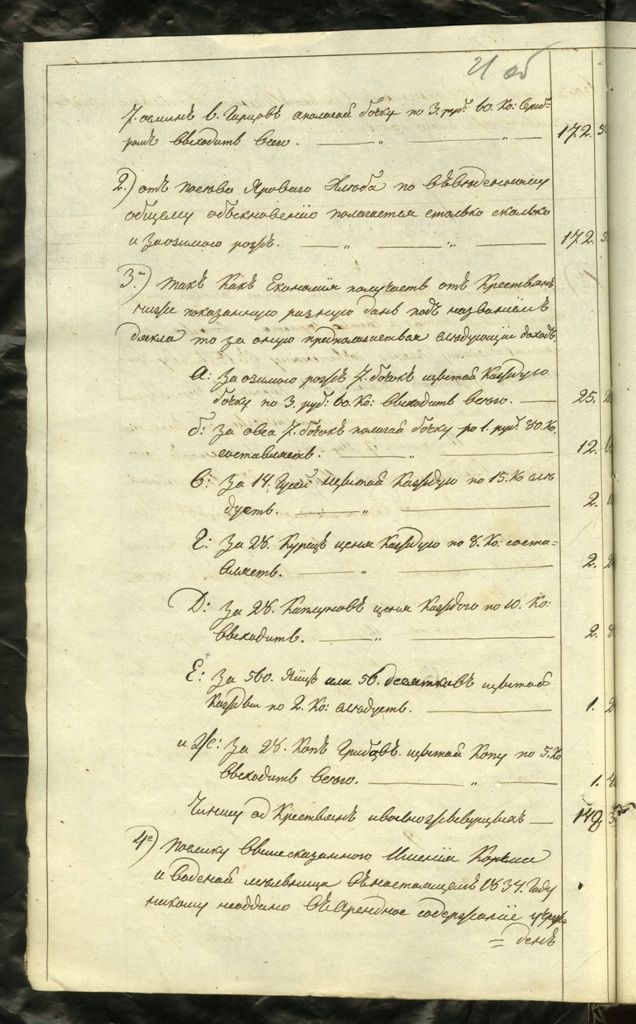 21 об
7. осминъ 6. Гарцовъ аполагая бочку по 3. руб: 60. Ко: Сереб-
ромъ выходитъ Всего. — „ — „ — 172. 5
2.) отъ посева Яроваго Хлеба по
общему обыкновенію полагается столько сколько
и Заозимаго рожъ. — „ — „ — 172. 5
3.) такъ какъ Економія получаетъ отъ Крестьянъ
ниже показанную разную дань подъ названіемъ
дякла то за оную предполагается следующій доходъ
А: За озимаго рожъ 7. бочокъ щытая Каждую
бочку по 3. руб: 60. Ко: выходитъ Всего. — 25. 2
б: За овса 7. бочокъ полагая бочку по 1. руб: 80. Ко,
составляетъ. — „ — 12. 6
В: За 14. Гусей щытая Каждую по 15. Ко слѣ
дуетъ. — „ — 2. 1
Г: За 28. Курицъ ценя Каждую по 8. Ко: соста-
вляетъ. — „ — 2. 2
Д: За 28. Каплуновъ ценя Каждого по 10. Ко:
выходитъ. — „ — 2. 8
Е: За 560. Яицъ или 56. десятковъ щытая
Каждый по 2. Ко: следуетъ. — 1.
и Ж: За 28. Копъ Грибовъ щытая Копу по 5. Ко
выходитъ всего. — „ — 1. 4
Чиншу од Крестьянъ — 148 3
4.) Поелику Вышесказанного Имения Корчмы
и Водяной мельница Внастоящемъ 1834. Году
никому неоддано Въ Арендное содержаніе
= денъ